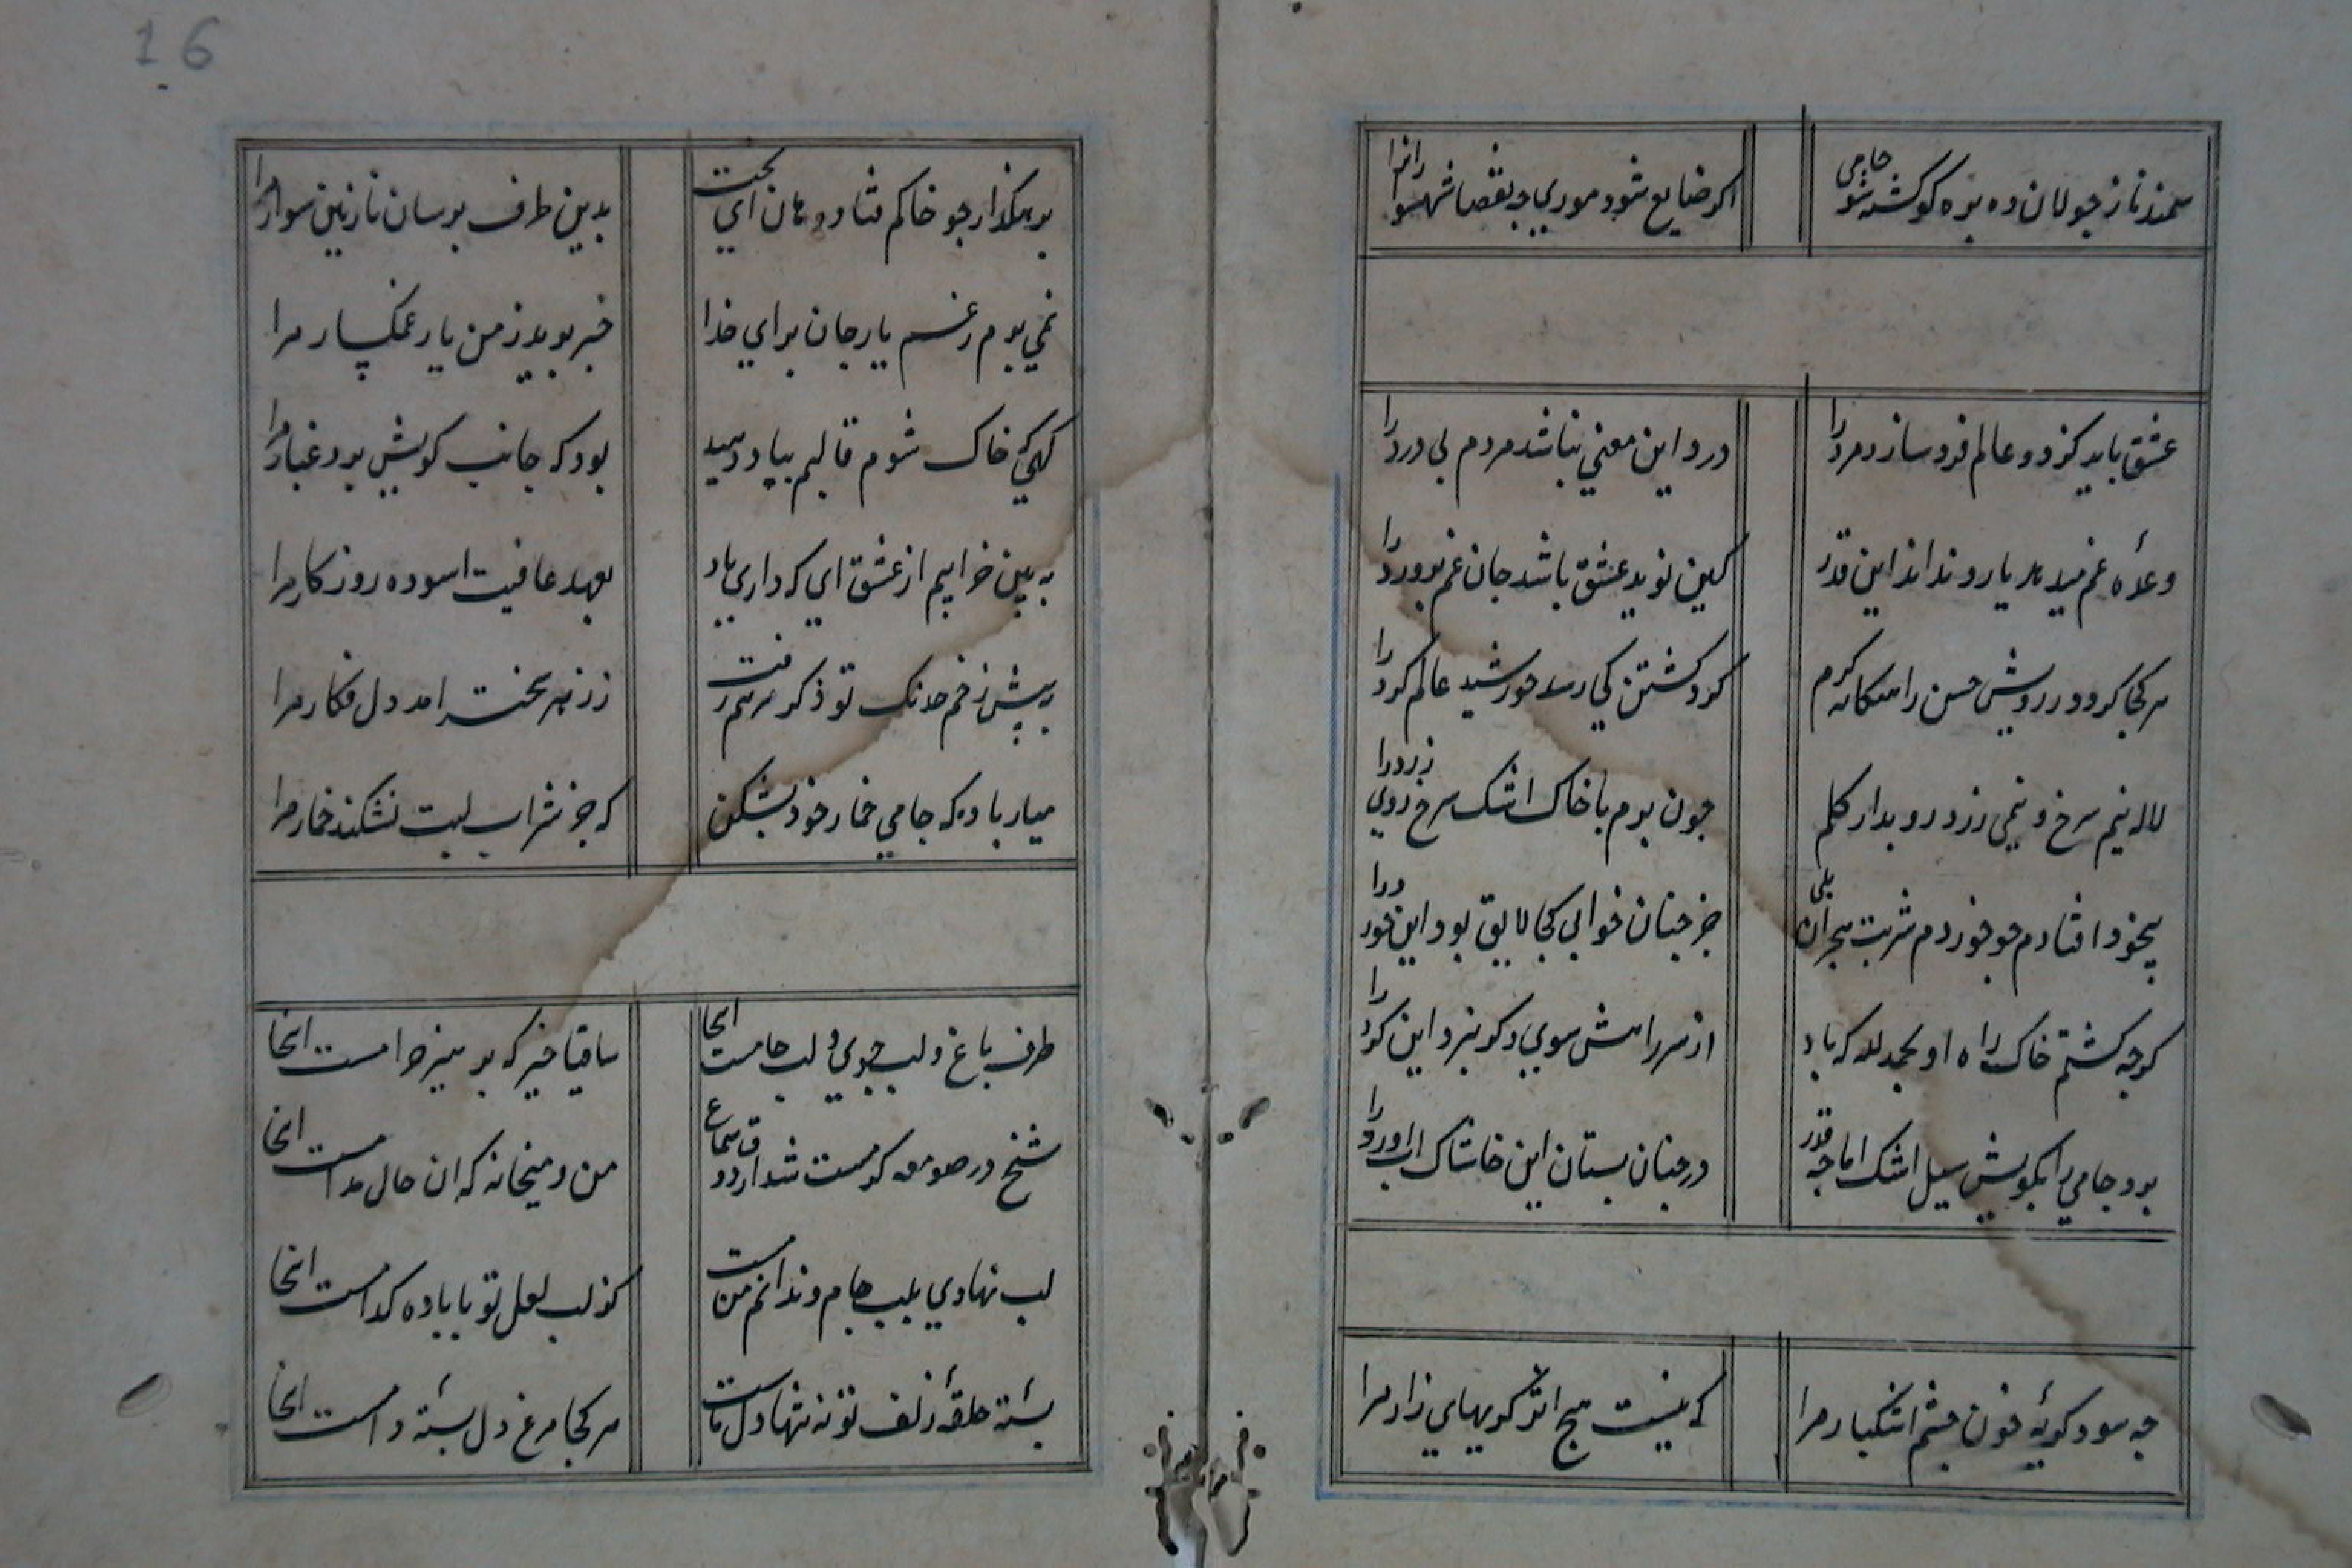 سمند ناز جولان ده بره کو کشته شو جامی
اکر ضایع شود موری چه نقصان شهسوارانرا
عشق باید کز دو عالم فرد سازد مرد را
درد این معنی نباشد مردم بی درد را
وعده غم میدهد یار و نداند این قدر
کین نوید عشق باشد جان غم پرورد را
هر کجا کردد رویش حسن را هنکامه کرم
کرد کشتن کی رسد خورشید عالم کرد را
لاله نیم سرخ و نیمی زرد رو بدار کلم
چون برم با خاک اشک سرخ روی زرد را
بیخود افتادم چو خوردم شربت هجران بلی
جز چنان خوابی کجا لایق بود این خورد را
کرچه کشتم خاک راه او بحمدلله که باد
از سر راهش سوی دکر نبرد این کرد را
برد جامی را بکویش سیل اشک اما چه قدر
در چنان بستان این خاشاک آب آورد را
چه سود کریه خون چشم اشکبار مرا
که نیست هیچ اثر کریهای زار مرا
16
برهکذار چو خاکم فتاده هان ای بخت
بدین طرف برسان نازنین سوار مرا
نمی برم زغم یار جان برای خدا
خبر برید ز من یار غمکسار مرا
کهی که خاک شوم قالبم بباد دهید
بود که جانب کویش برد غبار مرا
به بین خرابیم از عشق ای که داری یاد
بعهد عافیت اسوده روزکار مرا
به پیش زخم خدنک تو ذکر مرهم رفت
ززهر سخت امد دل فکار مرا
میار باده که جامی خمار خود بشکن
که جز شراب لبت نشکند خمار مرا
طرف باغ و لب جوی و لب جامست اینجا
ساقیا خیز که پرهیز حرامست اینجا
شیخ در صومعه کر مست شد از ذوق سماع
من و میخانه که ان حال مدامست اینجا
لب نهادی بلب جام و ندانم من مست
کز لب لعل تو یا باده کدامست اینجا
بسته حلقه زلف تو نه تنها دل ماست
هر کجا مرغ دل بسته دامست اینجا